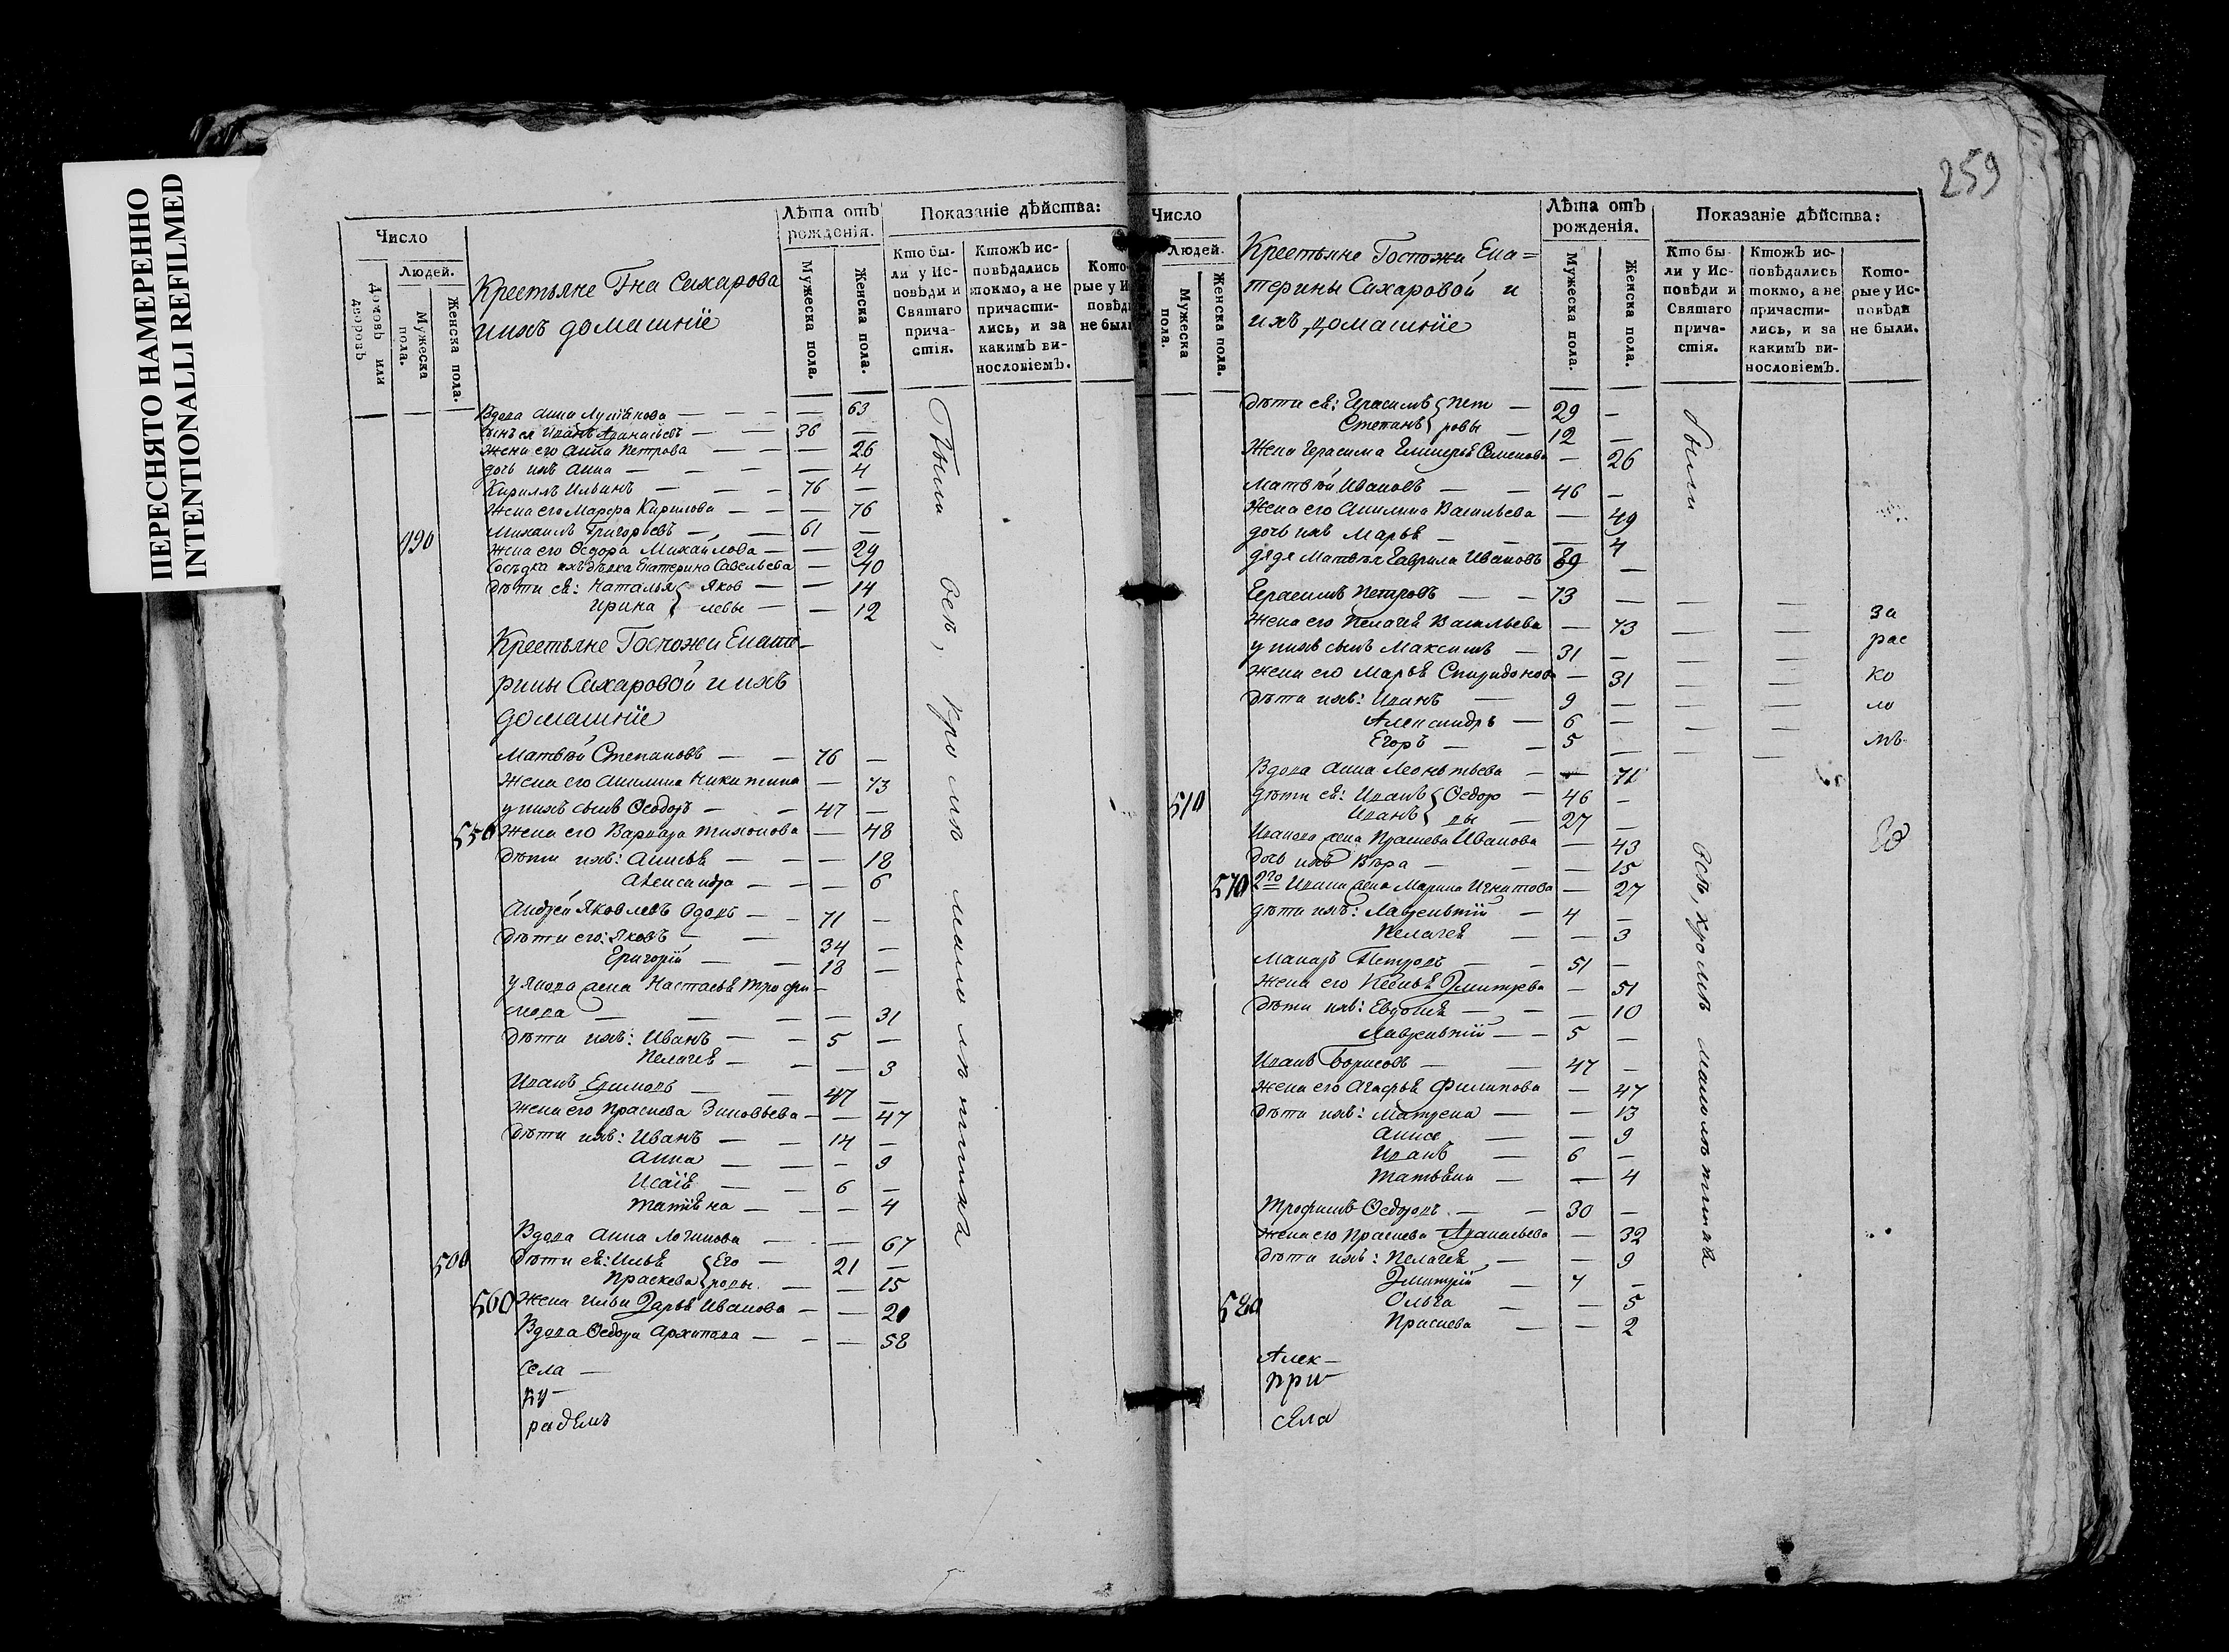 ПЕРЕСНЯТО НАМЕРЕННО
INTENTIONALLI REFILMED
Число
Домовъ или дворовъ
Людей.
Мужеска пола.
Женска пола.
Крестьяне Гна Сахарова
ихъ домашнїе
Лѣта отъ рожденія.
Мужеска пола.
Женска пола.
Показаніе дѣйства:
Кто были у Исповѣди и Святаго причастія.
Ктожъ исповѣдались токмо, а не причастились, и за какимъ винословіемъ.
Кото-
рые у И
повѣд
не был
Вдова Анна — — — — 63
Сынъ ея Иванъ Аѳанасьевъ — — 36 —
Жена его Анна Петрова — — — 26
дочь ихъ Анна — — — — 4
Кириллъ Ильинъ — — — 76 —
Жена его Марфа Кирилова — — — 76
490 Михаилъ Григорьевъ — — 61 —
Жена его Ѳедора Михайлова — — 29
Екатерина Савельева — 40
Дѣти еѣ: Наталья { Яков — — 14
Ирина { левы — — 12
Крестьяне Госпожи Екате-
рины Сахаровой и ихъ
домашнїе
Матвѣй Степановъ — — 76 —
Жена его Акилина Никитина — 73
у нихъ сынъ Ѳеодоръ — — 47 —
550 Жена его Варвара Тихонова — 48
Дѣти ихъ: Анисья — — — 18
Александра — — — 6
Андрей Яковлевъ вдовъ — — 71 —
Дѣти его: Яковъ — — 34 —
Григорій — — 18 —
у Якова жена Настасья Трофи-
мова — — — — 31
Дѣти ихъ: Иванъ — — 5 —
Пелагея — — — 3
Иванъ Ефимовъ — — 47 —
Жена его Прасковья Зиновьева — — 47
Дѣти ихъ: Иванъ — — 14 —
Анна — — — 9
Исаія — — 6 —
Татіяна — — — 4
Вдова Анна Логинова — — — 67
500 Дѣти еѣ: Илья { Его — 21 —
Праскева { ровы. — — 15
560 Жена Ильи Дарья Иванова — — 20
Вдова Ѳедора Архипова — — — 58
Села —
ку-
радимъ
Были всѣ, кромѣ малолѣтнихъ
259
Число
Людей.
Мужеска пола.
Женска пола.
Крестьяне Госпожи Ека=
терины Сахаровой и
ихъ домашнїе
Лѣта отъ рожденія.
Мужеска пола.
Женска пола.
Показаніе дѣйства:
Кто были у Исповѣди и Святаго причастія.
Ктожъ исповѣдались токмо, а не причастились, и за какимъ винословіемъ.
Которые у Исповѣди не были.
Дѣти еѣ: Герасимъ { Пет — 29 —
Степанъ { ровы — 12 —
Жена Герасима Семенова — 26
Матвѣй Ивановъ — — 46 —
Жена его Акилина Васильева — 49
дочь ихъ Марья — — — 4
дядя Матвѣя Гаврила Ивановъ 69 —
Герасимъ Петровъ — — 73 — — —
Жена его Пелагея Васильева — 73 — —
у нихъ сынъ Максимъ — 31 — — —
Жена его Марья Спиридонова — 31 — —
Дѣти ихъ: Иванъ — 9 — — —
Александръ — 6 — — —
Егоръ — — 5 — — —
за
рас
ко
ло
мъ
Вдова Анна Леонтьева — — 71
510 Дѣти еѣ: Иванъ { Ѳедоро — 46 —
Иванъ { вы — 27 —
Иванова жена Прасковья Иванова — 43
Дочь ихъ Вѣра — — 15
570 2го Ивана жена Марина — 27
Дѣти ихъ: Лаврентій — 4 —
Пелагея — — 3
Макаръ Петровъ — — 51 —
Жена его Дмитрева — 51
Дѣти ихъ: Евдокія — — — 10
Лаврентій — — 5 —
Иванъ Борисовъ — — 47 —
Жена его Агафья Филипова — 47
Дѣти ихъ: Матрена — — 13
— — 9
Иванъ — 6 —
Татьяна — — 4
Трофимъ Ѳедоровъ — — 30 —
Жена его Прасковья Аѳанасьева — 32
Дѣти ихъ: Пелагея — — 9
Дмитрій — 7 —
580 Ольга — — 5
Прасковья — — 2
Алек-
при-
села
Были всѣ, кромѣ малолѣтнихъ